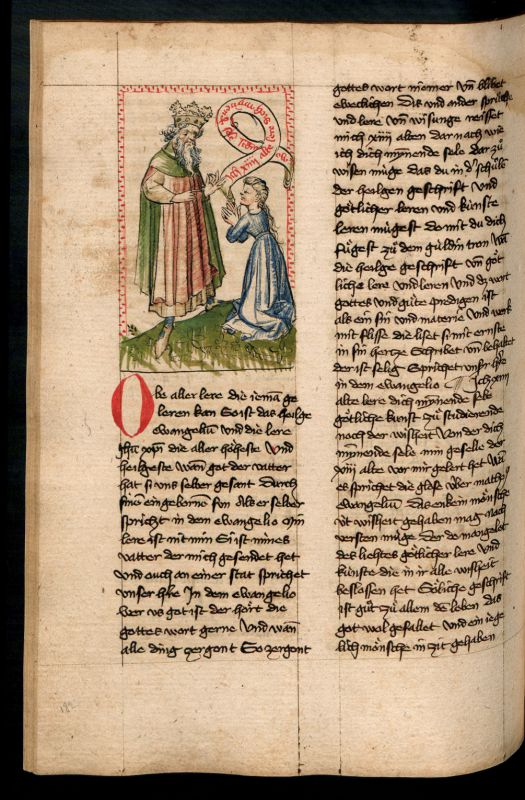 Obe aller lere die iema ge
leren kan So ist das heilge
ewangeliū Und die lere
ihū xp̄i die aller höheste Und
heilgeste Wan̄ got der vatter
hat si vns selber gesant Durch
sinē eingebornē sun Als er selber
spricht in dem ewangelio Min
lere ist nit min Si ist mines
vatter der mich gesendet het
Und ouch an einer stat sprichet
vnser h're In dem ewangelio
wer vs got ist der hört die
gottes wort gerne Und wan̄
alle ding zergont So zergont
gottes wort niemer Vn̄ blibet
eweclichen Dis und ander sprüche
und lere Vn̄ wisunge
mich xiiij alten dar nach wie
ich dich mȳnende sele dar zů
wisen müge das du in d' schůle
der heilgen geschrift Und
götlicher leren und künste
leren mügest do mit du dich
fügest zů dem guldin tron Wan̄
die heilge geschrift vn̄ göt
liche lere und leren Und dz wort
gottes und gute predigen ist
als ein sin und materie Und werk
mit flisse die liset si mit ernste
in sin hertze Schribet vn̄ behaltet
der ist selig Sprichet vnser h're
in dem ewangelio Ich xiiij
alte lere dich mȳnende sele
götliche kunst zů studierende
noch der wisheit Von der dich
mȳnende sele min geselle der
xiij alte vor mir gelert het Wan̄
es sprichet die glose über mathei
ewangeliū Das enkein mönsche
üt wisheit gehaben mag noch
versten müge der do mangelet
des liehtes götlicher lere Und
künste die in ir alle wisheit
beslossen het Söliche geschrift
ist gůt zů allem de leben das
got wol gefallet Und ein iege
lich mönsche in zit gehaben